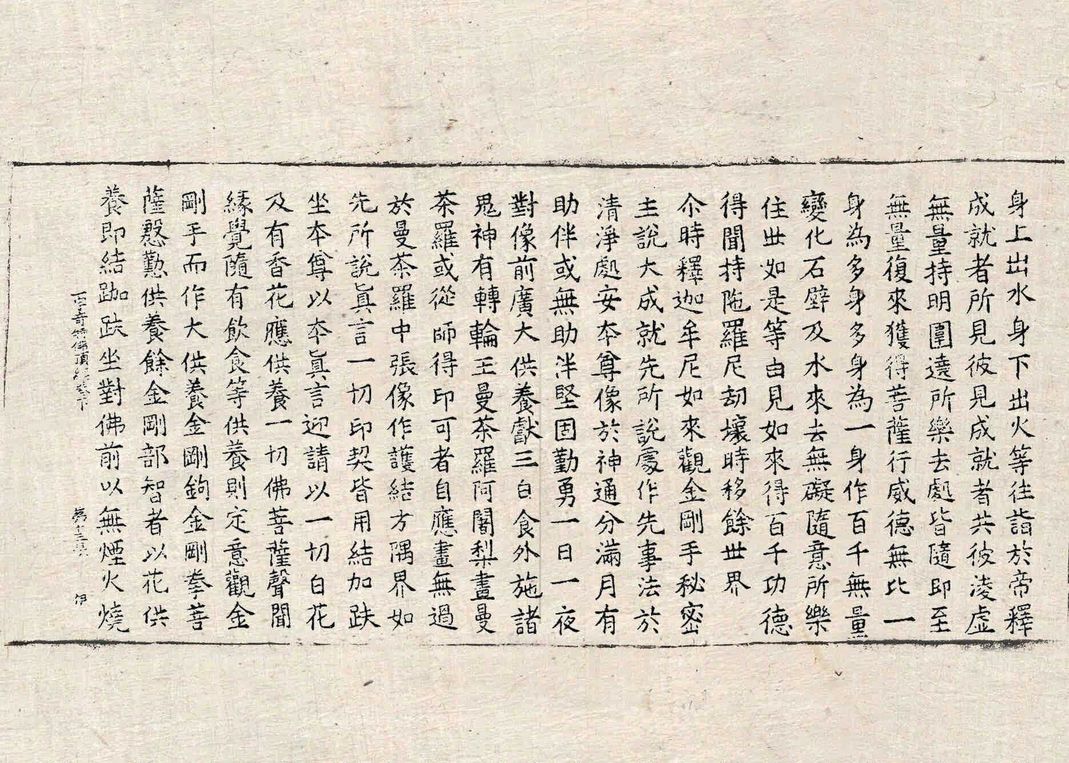 身上出水身下出火等往詣於帝釋
成就者所見彼見成就者共彼淩虛
無量持明圍遶所樂去處皆隨即至
無量復來獲得菩薩行威德無比一
身為多身多身為一身作百千無量
變化石壁及水來去無礙隨意所樂
住世如是等由見如來得百千功德
得聞持陁羅尼劫壞時移餘世界
尒時釋迦牟尼如來觀金剛手秘密
主說大成就先所說處作先事法於
清淨處安本尊像於神通分滿月有
助伴或無助泮堅固勤勇一日一夜
對像前廣大供養獻三白食外施諸
鬼神有轉輪王曼荼羅阿闍梨畫曼
荼羅或從師得印可者自應畫無過
於曼荼羅中張像作護結方隅界如
先所說真言一切印契皆用結加趺
坐本尊以本真言迎請以一切白花
及有香花應供養一切佛菩薩聲聞
緣覺隨有飲食等供養則定意觀金
剛手而作大供養金剛鉤金剛拳菩
薩慇懃供養餘金剛部智者以花供
一字奇特佛頂經卷下 第十三張 伊
養即結跏趺坐對佛前以無煙火燒